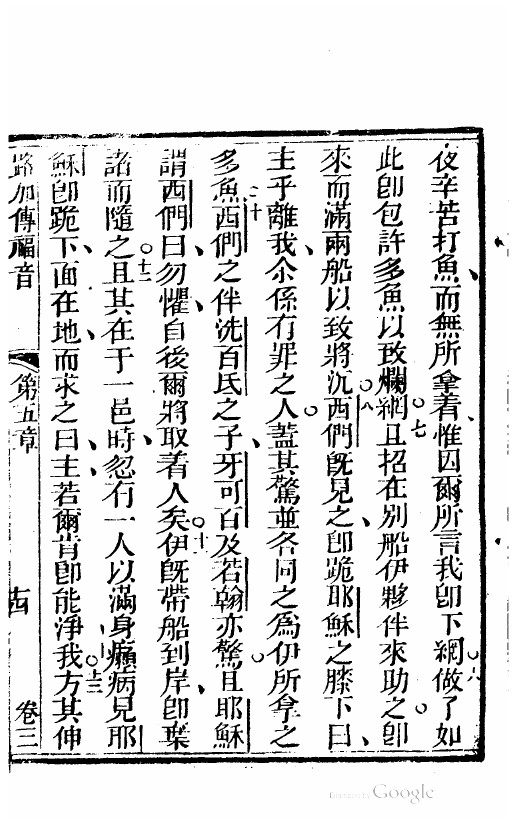 夜辛苦打魚、而無所拿着、惟因爾所言我即下網。六做了如
此即包許多魚以致爛網。七且招在別船伊夥伴來助之。即
來而滿兩船、以致將沉。八西們既見之、即跪耶穌之膝下曰、
主乎、離我、余係有罪之人。蓋其驚並各同之為伊所拿之。
多魚。十西們之伴洗百氏之子、牙可百及若翰亦驚。且耶穌
謂西們曰、勿懼、自後爾將取着人矣。十一伊既帶船到岸、即棄
諸而隨之。十二且其在于一邑時、忽有一人以滿身癩病、見耶
穌即跪下、面在地、而求之曰、主、若爾肯、即能淨我。十三方其伸
路加傳福音 第五章 十四 卷三
Digitized by Google